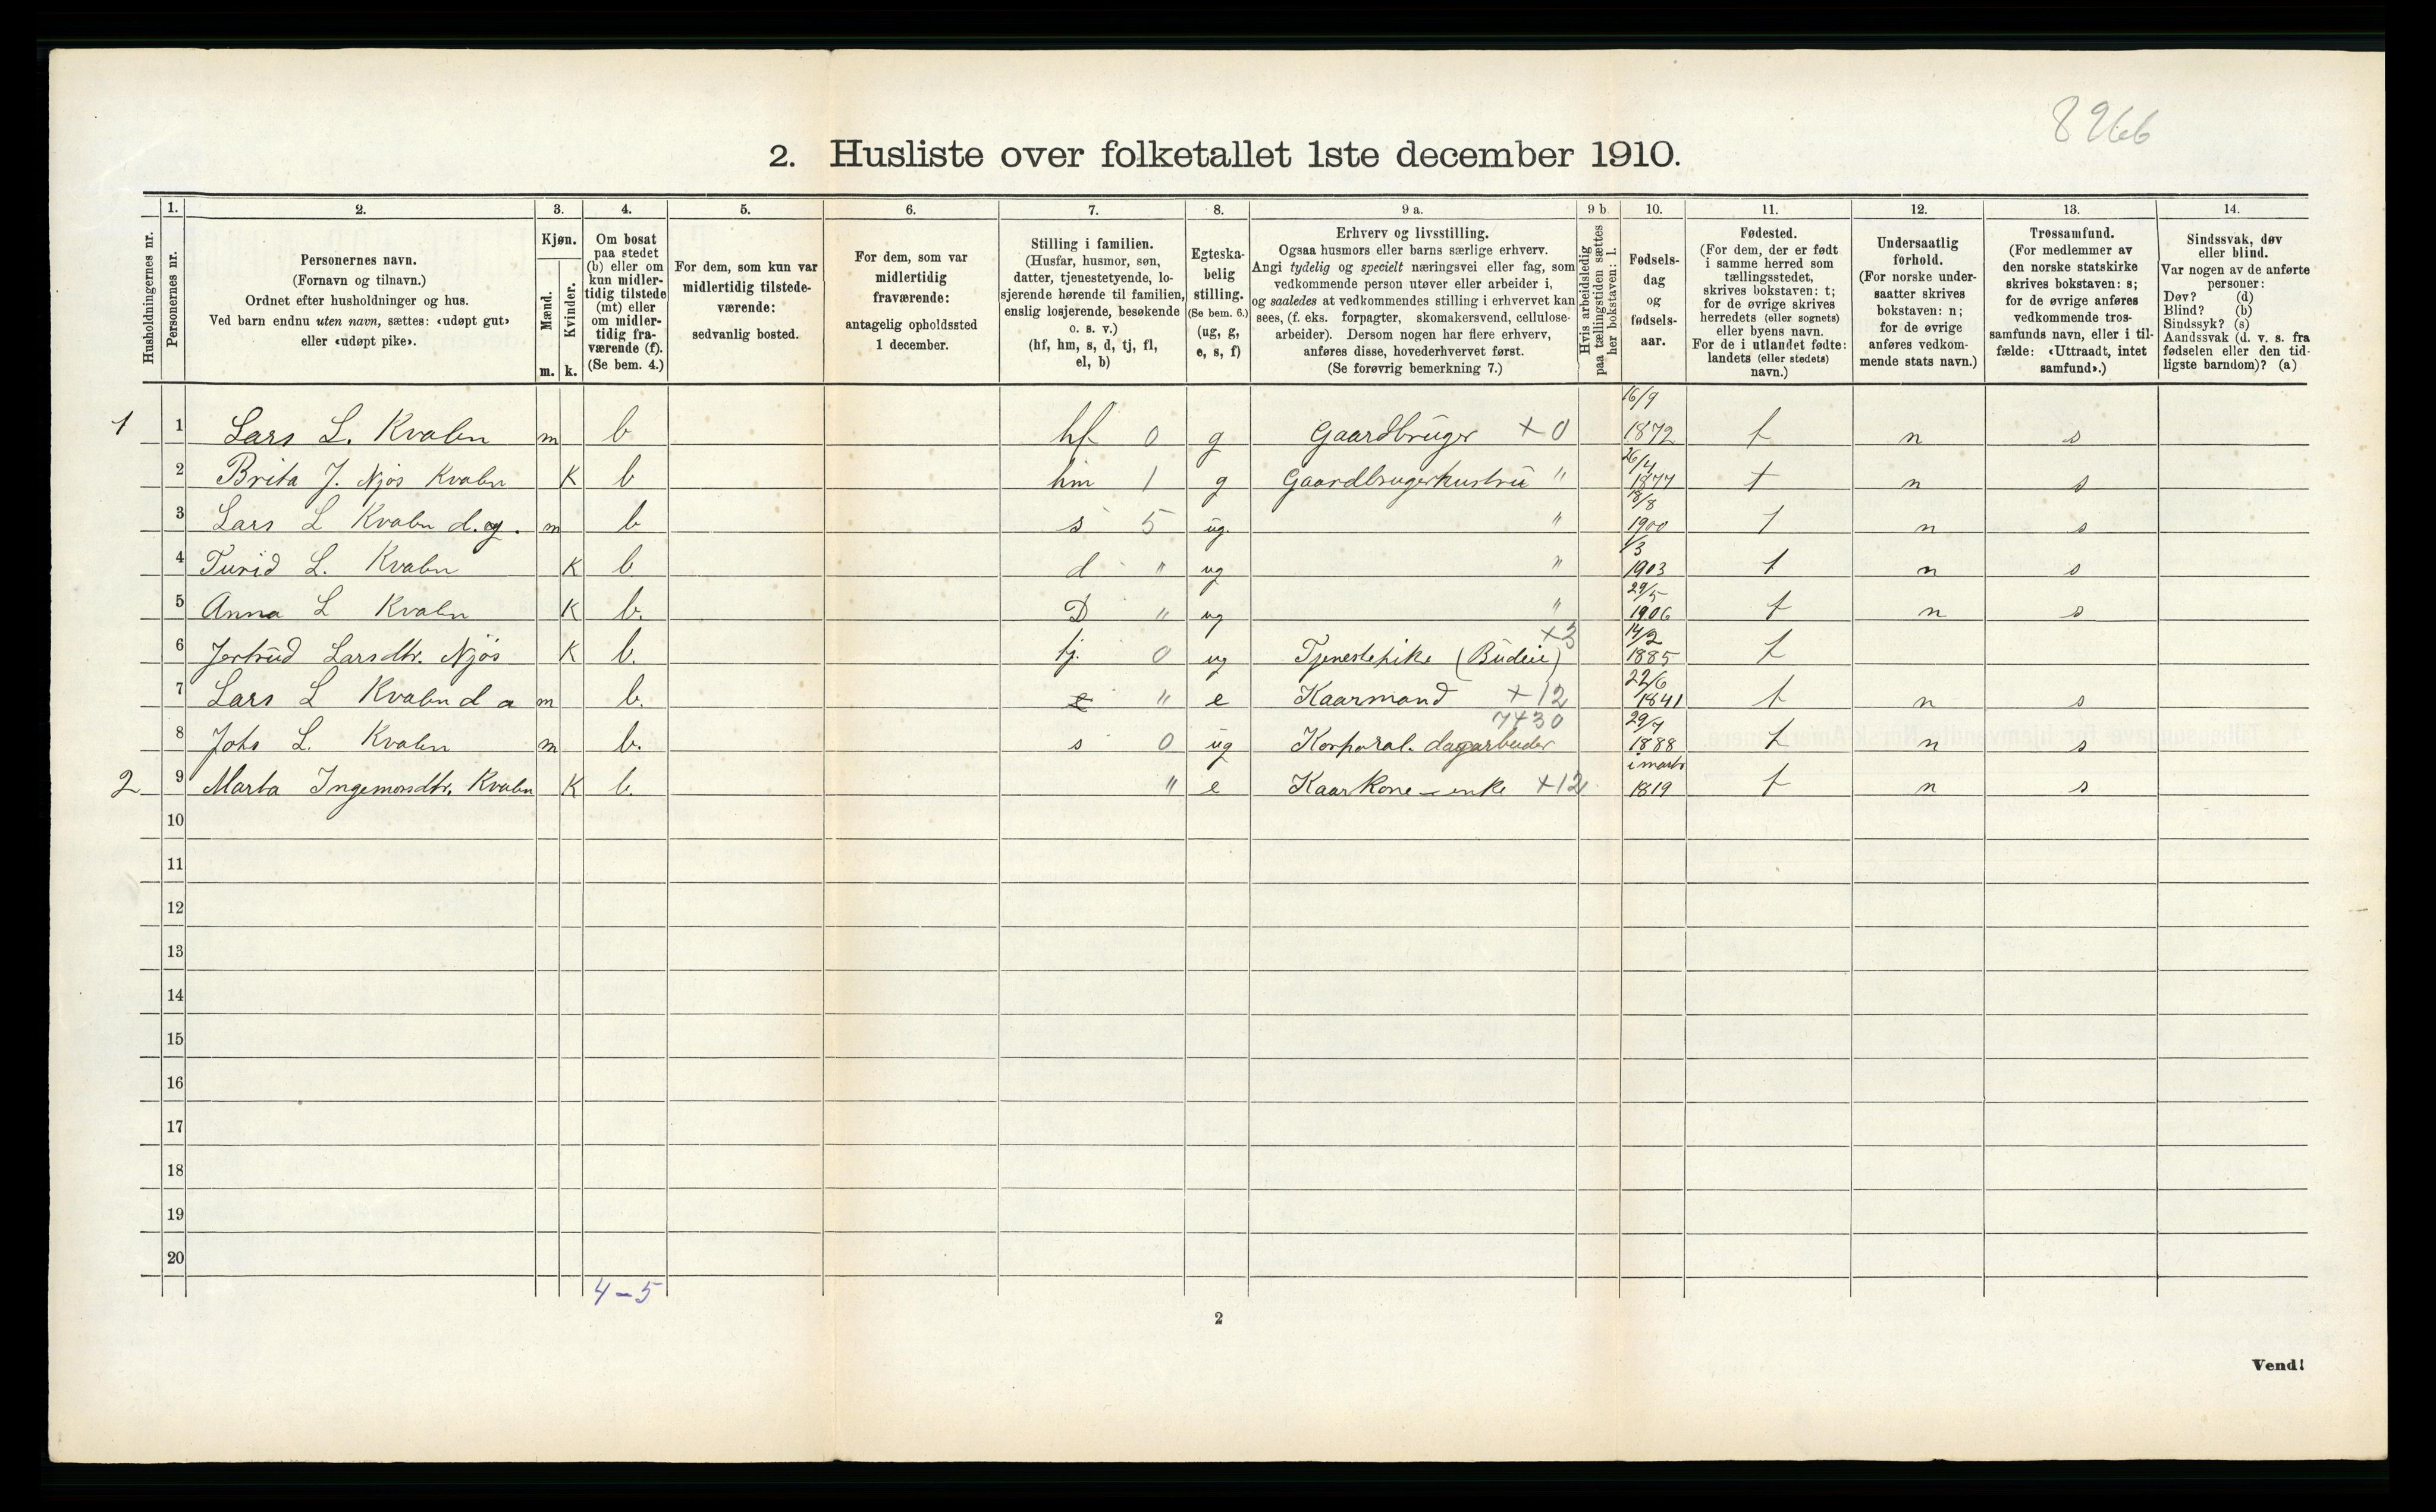 8266
2. Husliste over folketallet 1ste december 1910.
Husholdningernes nr.
1.
Personernes nr.
2.
Personernes navn.
(Fornavn og tilnavn.)
Ordnet efter husholdninger og hus.
Ved barn endnu uten navn, sættes: «udøpt gut»
eller «udøpt pike».
3.
Kjøn.
Mænd.
Kvinder.
m. k.
4.
Om bosat
paa stedet
(b) eller om
kun midler-
tidig tilstede
(mt) eller
om midler-
tidig fra-
værende (f).
(Se bem. 4.)
5.
For dem, som kun var
midlertidig tilstede-
værende:
sedvanlig bosted.
6.
For dem, som var
midlertidig
fraværende:
antagelig opholdssted
1 december.
7.
Stilling i familien.
(Husfar, husmor, søn,
datter, tjenestetyende, lo-
sjerende hørende til familien,
enslig losjerende, besøkende
o. s. v.)
(hf, hm, s, d, tj, fl,
el, b)
8.
Egteska-
belig
stilling.
(Se bem. 6.)
(ug, g,
e, s, f)
9 a.
Erhverv og livsstilling.
Ogsaa husmors eller barns særlige erhverv.
Angi tydelig og specielt næringsvei eller fag, som
vedkommende person utøver eller arbeider i,
og saaledes at vedkommendes stilling i erhvervet kan
sees, (f. eks. forpagter, skomakersvend, cellulose-
arbeider). Dersom nogen har flere erhverv,
anføres disse, hovederhvervet først.
(Se forøvrig bemerkning 7.)
9 b
Hvis arbeidsledig
paa tællingstiden sættes
her bokstaven: l.
10.
Fødsels-
dag
og
fødsels-
aar.
11.
Fødested.
(For dem, der er født
i samme herred som
tællingsstedet,
skrives bokstaven: t;
for de øvrige skrives
herredets (eller sognets)
eller byens navn.
For de i utlandet fødte:
landets (eller stedets)
navn.)
12.
Undersaatlig
forhold.
(For norske under-
saatter skrives
bokstaven: n;
for de øvrige
anføres vedkom-
mende stats navn.)
13.
Trossamfund.
(For medlemmer av
den norske statskirke
skrives bokstaven: s;
for de øvrige anføres
vedkommende tros-
samfunds navn, eller i til-
fælde: «Uttraadt, intet
samfund».)
14.
Sindssvak, døv
eller blind.
Var nogen av de anførte
personer:
Døv? (d)
Blind? (b)
Sindssyk? (s)
Aandssvak (d. v. s. fra
fødselen eller den tid-
ligste barndom)? (a)
1 1 Lars L. Kvalen m b hf 0 g Gaardbruger +0 16/9 1872 t n s
2 Brita J. Njøs Kvalen K b hm 1 g Gaardbrugerhustru " 26/4 1877 t n s
3 Lars L Kvalen d.y. m b s 5 ug. " 18/8 1900 t n s
4 Turid L. Kvalen K b d " ug " 1/3 1903 t n s
5 Anna L Kvalen K b. D " ug " 29/5 1906 t n s
6 Jertrud Larsdtr. Njøs K b. tj. 0 ug Tjenestepike (Budeie) +3 14/2 1885 t
7 Lars L Kvalen d a m b. " e Kaarmand +12 22/6 1841 t n s
8 Johs L. Kvalen m b. s 0 ug Korporal. dagarbeider 7430 29/7 1888 t n s
2 9 Marta Ingemonsdtr. Kvalen K b. " e Kaarkone - enke +12 i marts 1819 t n s
10
11
12
13
14
15
16
17
18
19
20
4-5
2
Vend!